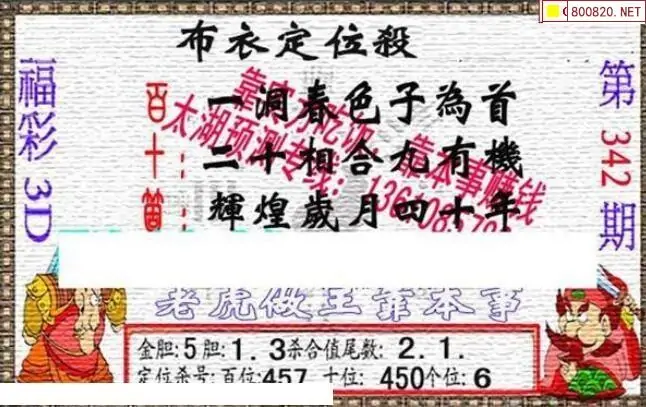 800820.NET
布衣定位殺
福彩3D
第342期
百十個
一洞春色子為首
二十相合九有機
輝煌歲月四十年
靠实力吃饭 靠本事赚钱
太湖预测专线:
老虎做王靠本事
金胆:5胆:1.3杀合值尾数:2.1.
定位杀号:百位:457 十位:450个位:6